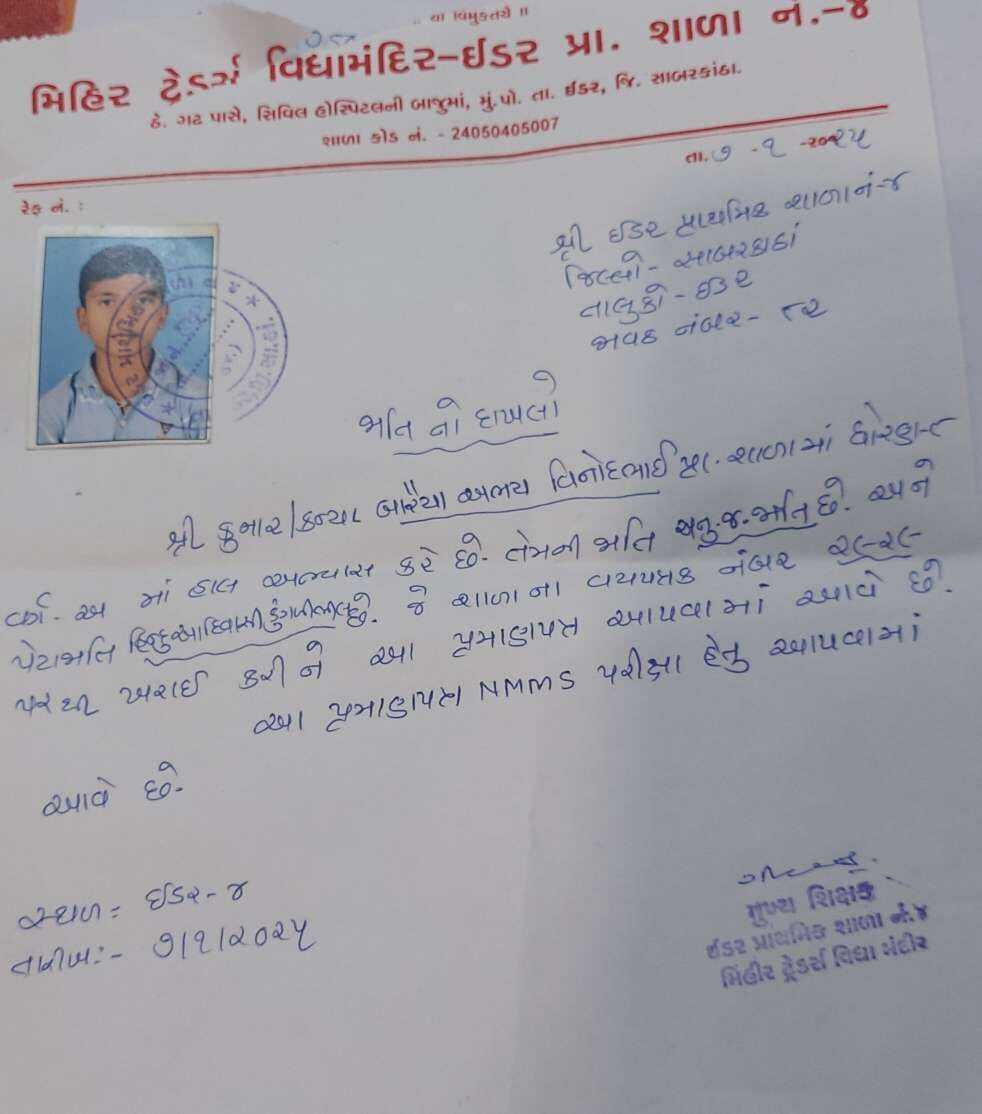 યા વિમુક્તયે ॥
મિહિર ટ્રેડર્સ વિધામંદિર-ઈડર પ્રા. શાળા નં.-૪
ઠે. ગઢ પાસે, સિવિલ હોસ્પિટલની બાજુમાં, મું.પો. તા. ઈડર, જિ. સાબરકાંઠા.
શાળા કોડ નં. - 24050405007
તા. ૭ -૧ -૨૦૨૫
રેફ નં. :
શ્રી ઈડર પ્રાથમિક શાળા નં-૪
જિલ્લો - સાબરકાઠાં
તાલુકો - ઈડર
જાવક નંબર - ૮૨
જાતિ નો દાખલો
શ્રી કુમાર/કન્યા બારૈયા અભય વિનોદભાઈ પ્રા. શાળા માં ધોરણ-૮
વર્ગ - અ માં હાલ અભ્યાસ કરે છે. તેમની જાતિ અનુ.જ.જાતિ છે. અને
પેટાજાતિ હિન્દુ આદિવાસી ડુંગરીભીલ છે. જે શાળા ના વયપત્રક નંબર ૨૯૨૯
પર થી ખરાઈ કરી ને આ પ્રમાણપત્ર આપવા માં આવે છે.
આ પ્રમાણપત્ર NMMS પરીક્ષા હેતુ આપવામાં
આવે છે.
સ્થળ = ઈડર-૪
તારીખ:- ૭/૧/૨૦૨૫
મુખ્ય શિક્ષક
ઈડર પ્રાથમિક શાળા નં.૪
મિહીર ટ્રેડર્સ વિદ્યા મંદીર